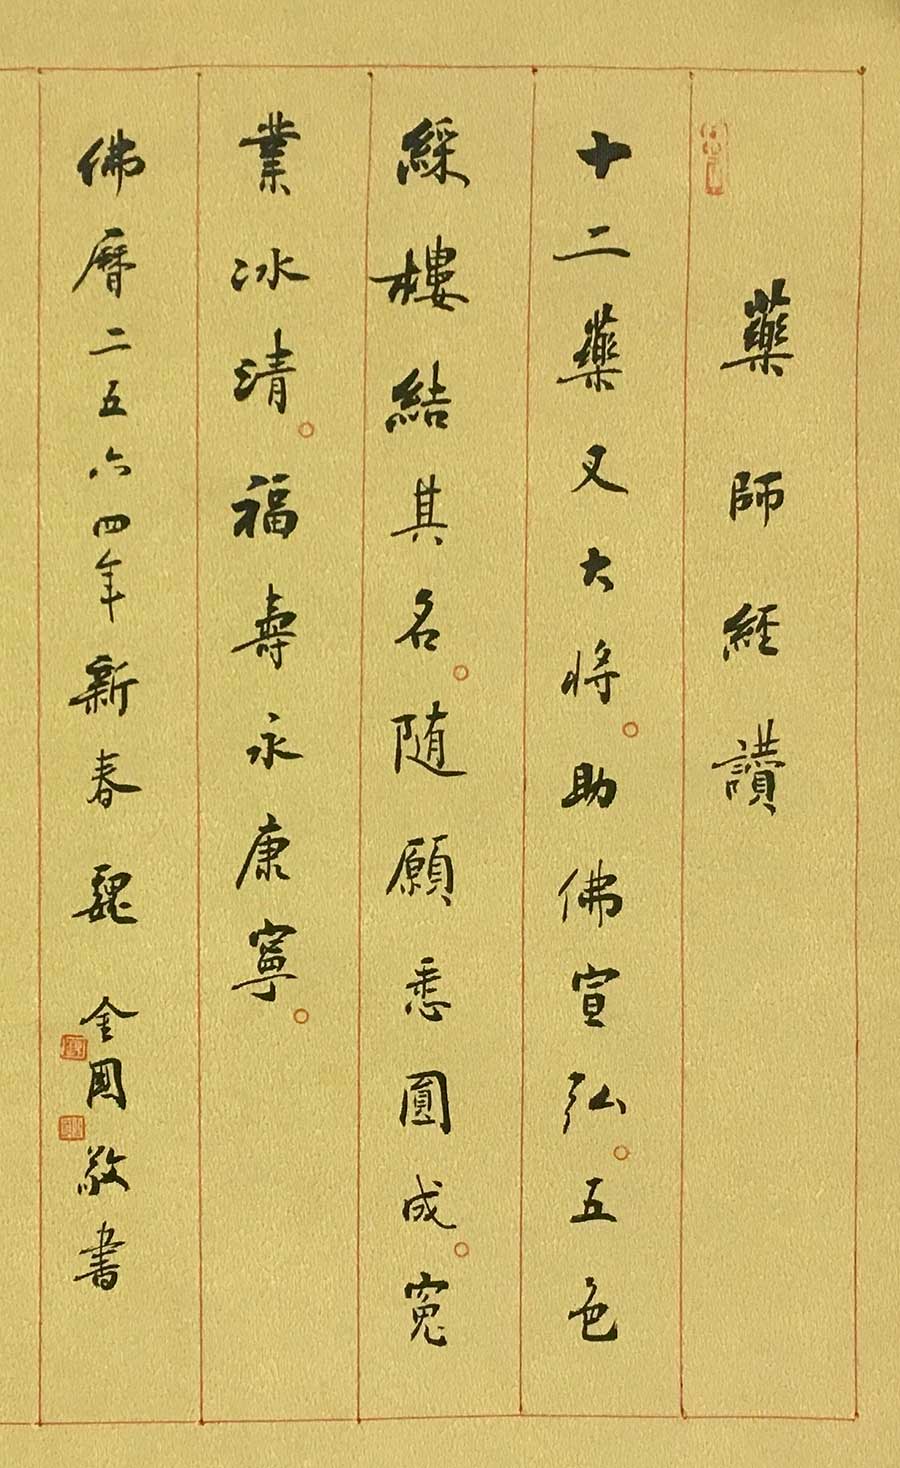 藥師經讚
十二藥叉大将。助佛宣弘。五色
綵樓結其名。随願悉圓成。寃
業冰清。福壽永康寧。
佛曆二五六四年新春 魏金國敬書